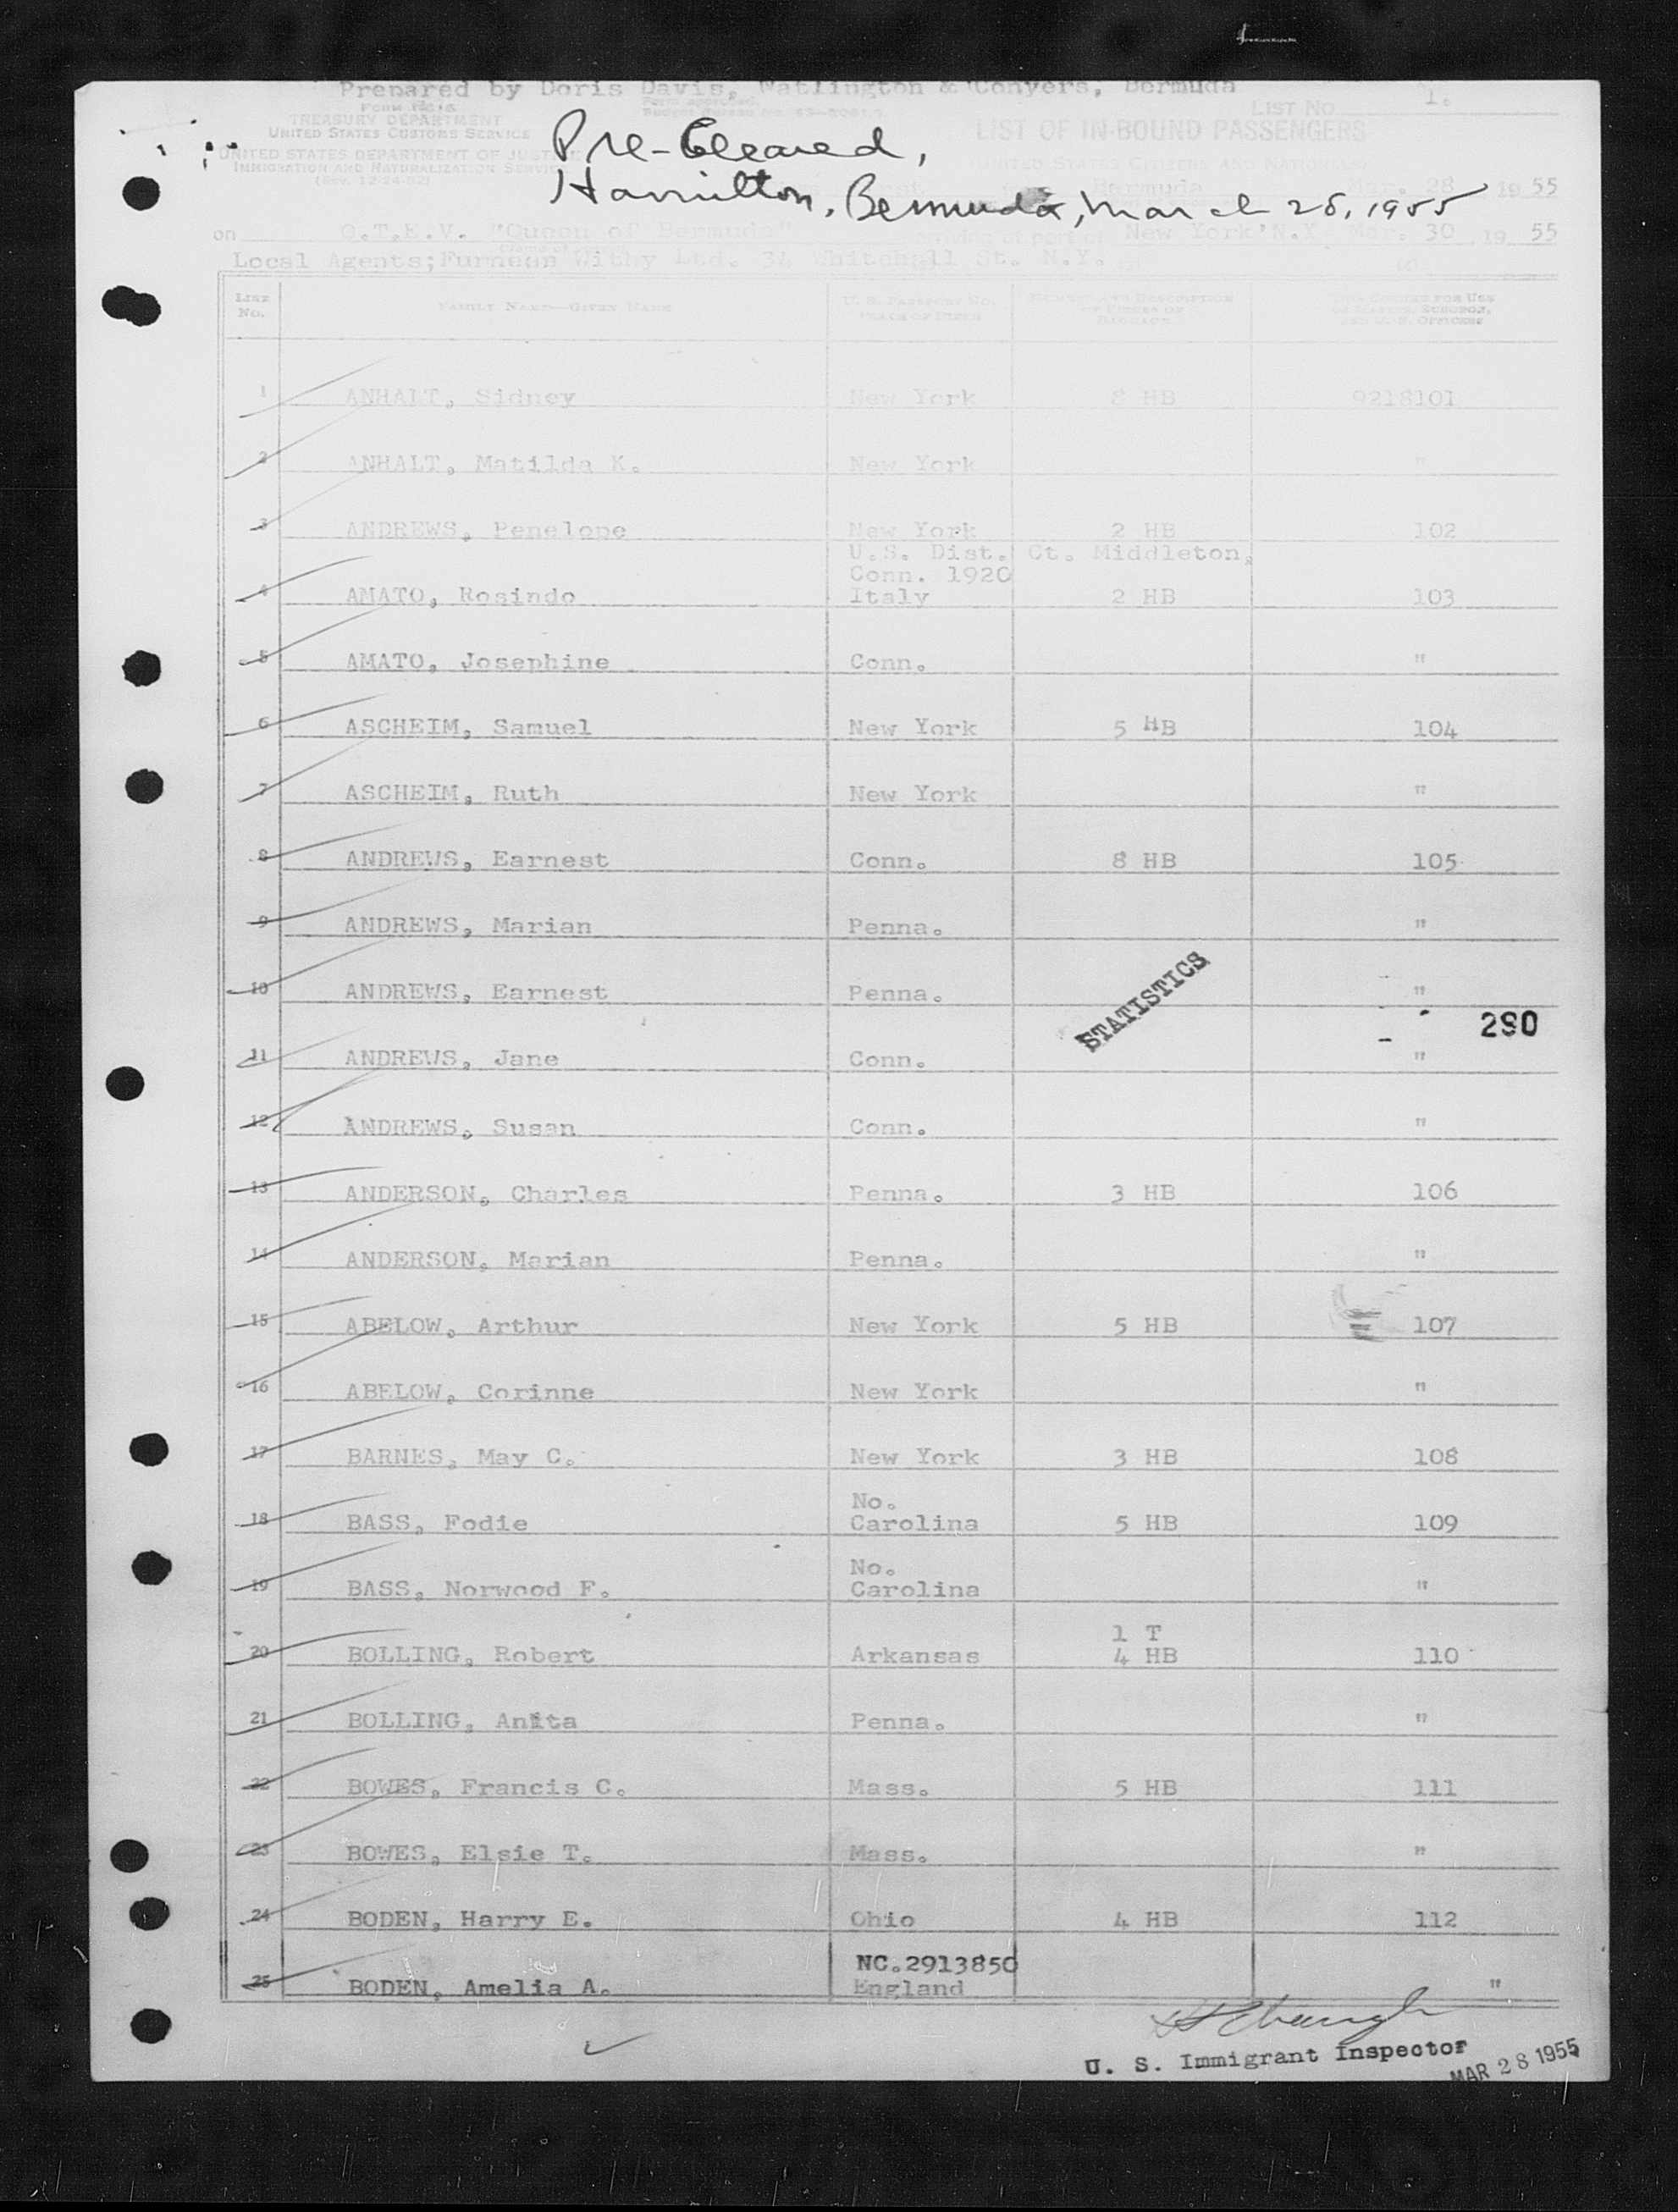 Prepared by Doris Davis, Watlington & Conyers, Bermuda
LIST NO. 1.
TREASURY DEPARTMENT
UNITED STATES CUSTOMS SERVICE
LIST OF IN-BOUND PASSENGERS
UNITED STATES DEPARTMENT OF JUSTICE
IMMIGRATION AND NATURALIZATION SERVICE
(Rev. 12-24-52)
UNITED STATES CITIZENS AND NATIONALS
Pre-Cleared,
Hamilton, Bermuda, March 28, 1955
Bermuda Mar. 28 1955
on Q.T.E.V. "Queen of Bermuda" arriving at port of New York N.Y. Mar. 30, 1955
Local Agents; Furness Withy Ltd. 34 Whitehall St. N.Y.
LINE NO. FAMILY NAME—GIVEN NAME U. S. PASSPORT NO. PLACE OF BIRTH NUMBER AND DESCRIPTION OF PIECES OF BAGGAGE THIS COLUMN FOR USE OF MASTER, SURGEON, AND U. S. OFFICERS
1 ANHALT, Sidney New York 8 HB 9218101
2 ANHALT, Matilda K. New York "
3 ANDREWS, Penelope New York 2 HB 102
U.S. Dist. Ct. Middleton,
Conn. 1920
4 AMATO, Rosindo Italy 2 HB 103
5 AMATO, Josephine Conn. "
6 ASCHEIM, Samuel New York 5 HB 104
7 ASCHEIM, Ruth New York "
8 ANDREWS, Earnest Conn. 8 HB 105
9 ANDREWS, Marian Penna. "
10 ANDREWS, Earnest Penna. "
STATISTICS
290
11 ANDREWS, Jane Conn. "
12 ANDREWS, Susan Conn. "
13 ANDERSON, Charles Penna. 3 HB 106
14 ANDERSON, Marian Penna. "
15 ABELOW, Arthur New York 5 HB 107
16 ABELOW, Corinne New York "
17 BARNES, May C. New York 3 HB 108
No.
18 BASS, Fodie Carolina 5 HB 109
No.
19 BASS, Norwood F. Carolina "
1 T
20 BOLLING, Robert Arkansas 4 HB 110
21 BOLLING, Anita Penna. "
22 BOWES, Francis C. Mass. 5 HB 111
23 BOWES, Elsie T. Mass. "
24 BODEN, Harry E. Ohio 4 HB 112
NC.2913850
25 BODEN, Amelia A. England "
U. S. Immigrant Inspector
MAR 28 1955